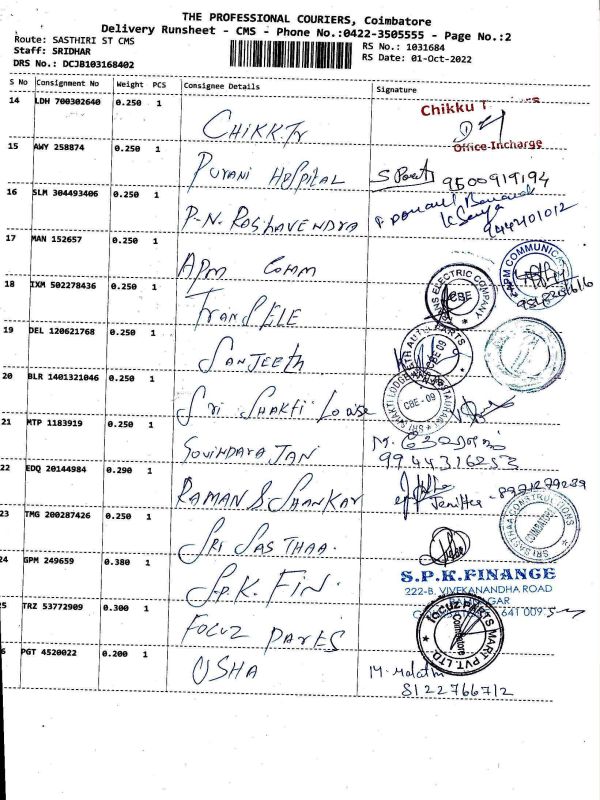 THE PROFESSIONAL COURIERS, Coimbatore
Delivery Runsheet - CMS - Phone No.:0422-3505555 - Page No.:2
Route: SASTHIRI ST CMS
Staff: SRIDHAR
DRS No.: DCJB103168402
RS No.: 1031684
RS Date: 01-Oct-2022
S No Consignment No Weight PCS Consignee Details Signature
14 LDH 700302640 0.250 1
CHIKKTr
Chikku
Office Incharge
15 AWY 258874 0.250 1
PURANI HOSPITAL
9500919194
16 SLM 304493406 0.250 1
P.N. RAGHAVENDRA
9444401012
17 MAN 152657 0.250 1
APM COMM
APM COMMUNIC
18 IXM 502278436 0.250 1
TRANSELE
ANS ELECTRIC COMPANY
CBE
19 DEL 120621768 0.250 1
SANJEETH
AUTO PARTS
CBE 09
20 BLR 1401321046 0.250 1
SRI SHAKTI
SRI SHAKTI LODGE
CBE - 09
21 MTP 1183919 0.250 1
GOVINDARAJAN
9944316253
22 EDQ 20144984 0.290 1
RAMAN & SHANKAR
Jeniffer
23 TMG 200287426 0.250 1
SRI SASTHAA
SRI SASTHAA CONSTRUCTIONS
COIMBATORE
24 GPM 249659 0.380 1
S.P.K. FIN.
S.P.K.FINANCE
222-B, VIVEKANANDHA ROAD
641 009
5 TRZ 53772909 0.300 1
FOCUZ PARTS
FOCUZ PARTS MART PVT. LTD.
Coimbatore
6 PGT 4520022 0.200 1
USHA
M. Malathi
8122766712